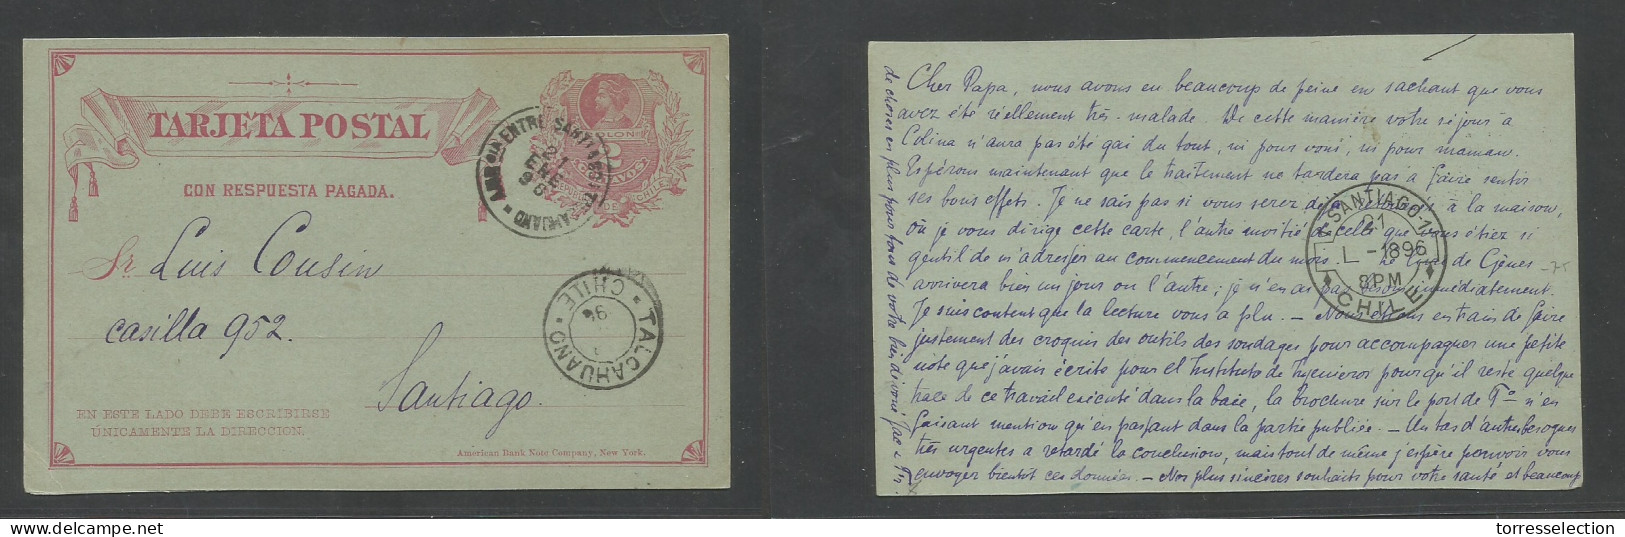 TARJETA POSTAL
CON RESPUESTA PAGADA.
COLON
2
CENTAVOS
REPUBLICA DE CHILE
AMBCIA ENTRE SANTIAGO I TALCAHUANO
21
ENE
96
Sr. Luis Cousin
casilla 952.
Santiago.
TALCAHUANO
CHILE
96
EN ESTE LADO DEBE ESCRIBIRSE
ÚNICAMENTE LA DIRECCION.
American Bank Note Company, New York.
Cher Papa, nous avons eu beaucoup de peine en sachant que vous
avez été réellement très-malade. De cette manière votre séjour à
Colina n'aura pas été gai du tout, ni pour vous, ni pour maman.
Espérons maintenant que le traitement ne tardera pas à faire sentir
ses bons effets. Je ne sais pas si vous serez de à la maison,
où je vous dirige cette carte, l'autre moitié de celle que vous étiez si
gentil de m'adresser au commencement du mois. Le de Gênes
arrivera bien un jour ou l'autre; je n'en ai pas besoin immédiatement.
Je suis content que la lecture vous a plu. — Nous étions en train de faire
justement des croquis des outils des sondages pour accompagner une petite
note que j'avais écrite pour el Instituto de Ingenieros pour qu'il reste quelque
trace de ce travail exécuté dans la baie, la brochure sur le port de T° n'en
faisant mention qu'en passant dans la partie publiée. — Un tas d'autres besognes
très urgentes a retardé la conclusion, mais tout de même j'espère pouvoir vous
envoyer bientôt ces données. — Nos plus sincères souhaits pour votre santé et beaucoup
de choses en plus pour tous de votre bien dévoué
SANTIAGO-1
21
L -1896
8PM
CHILE
75
torresselection